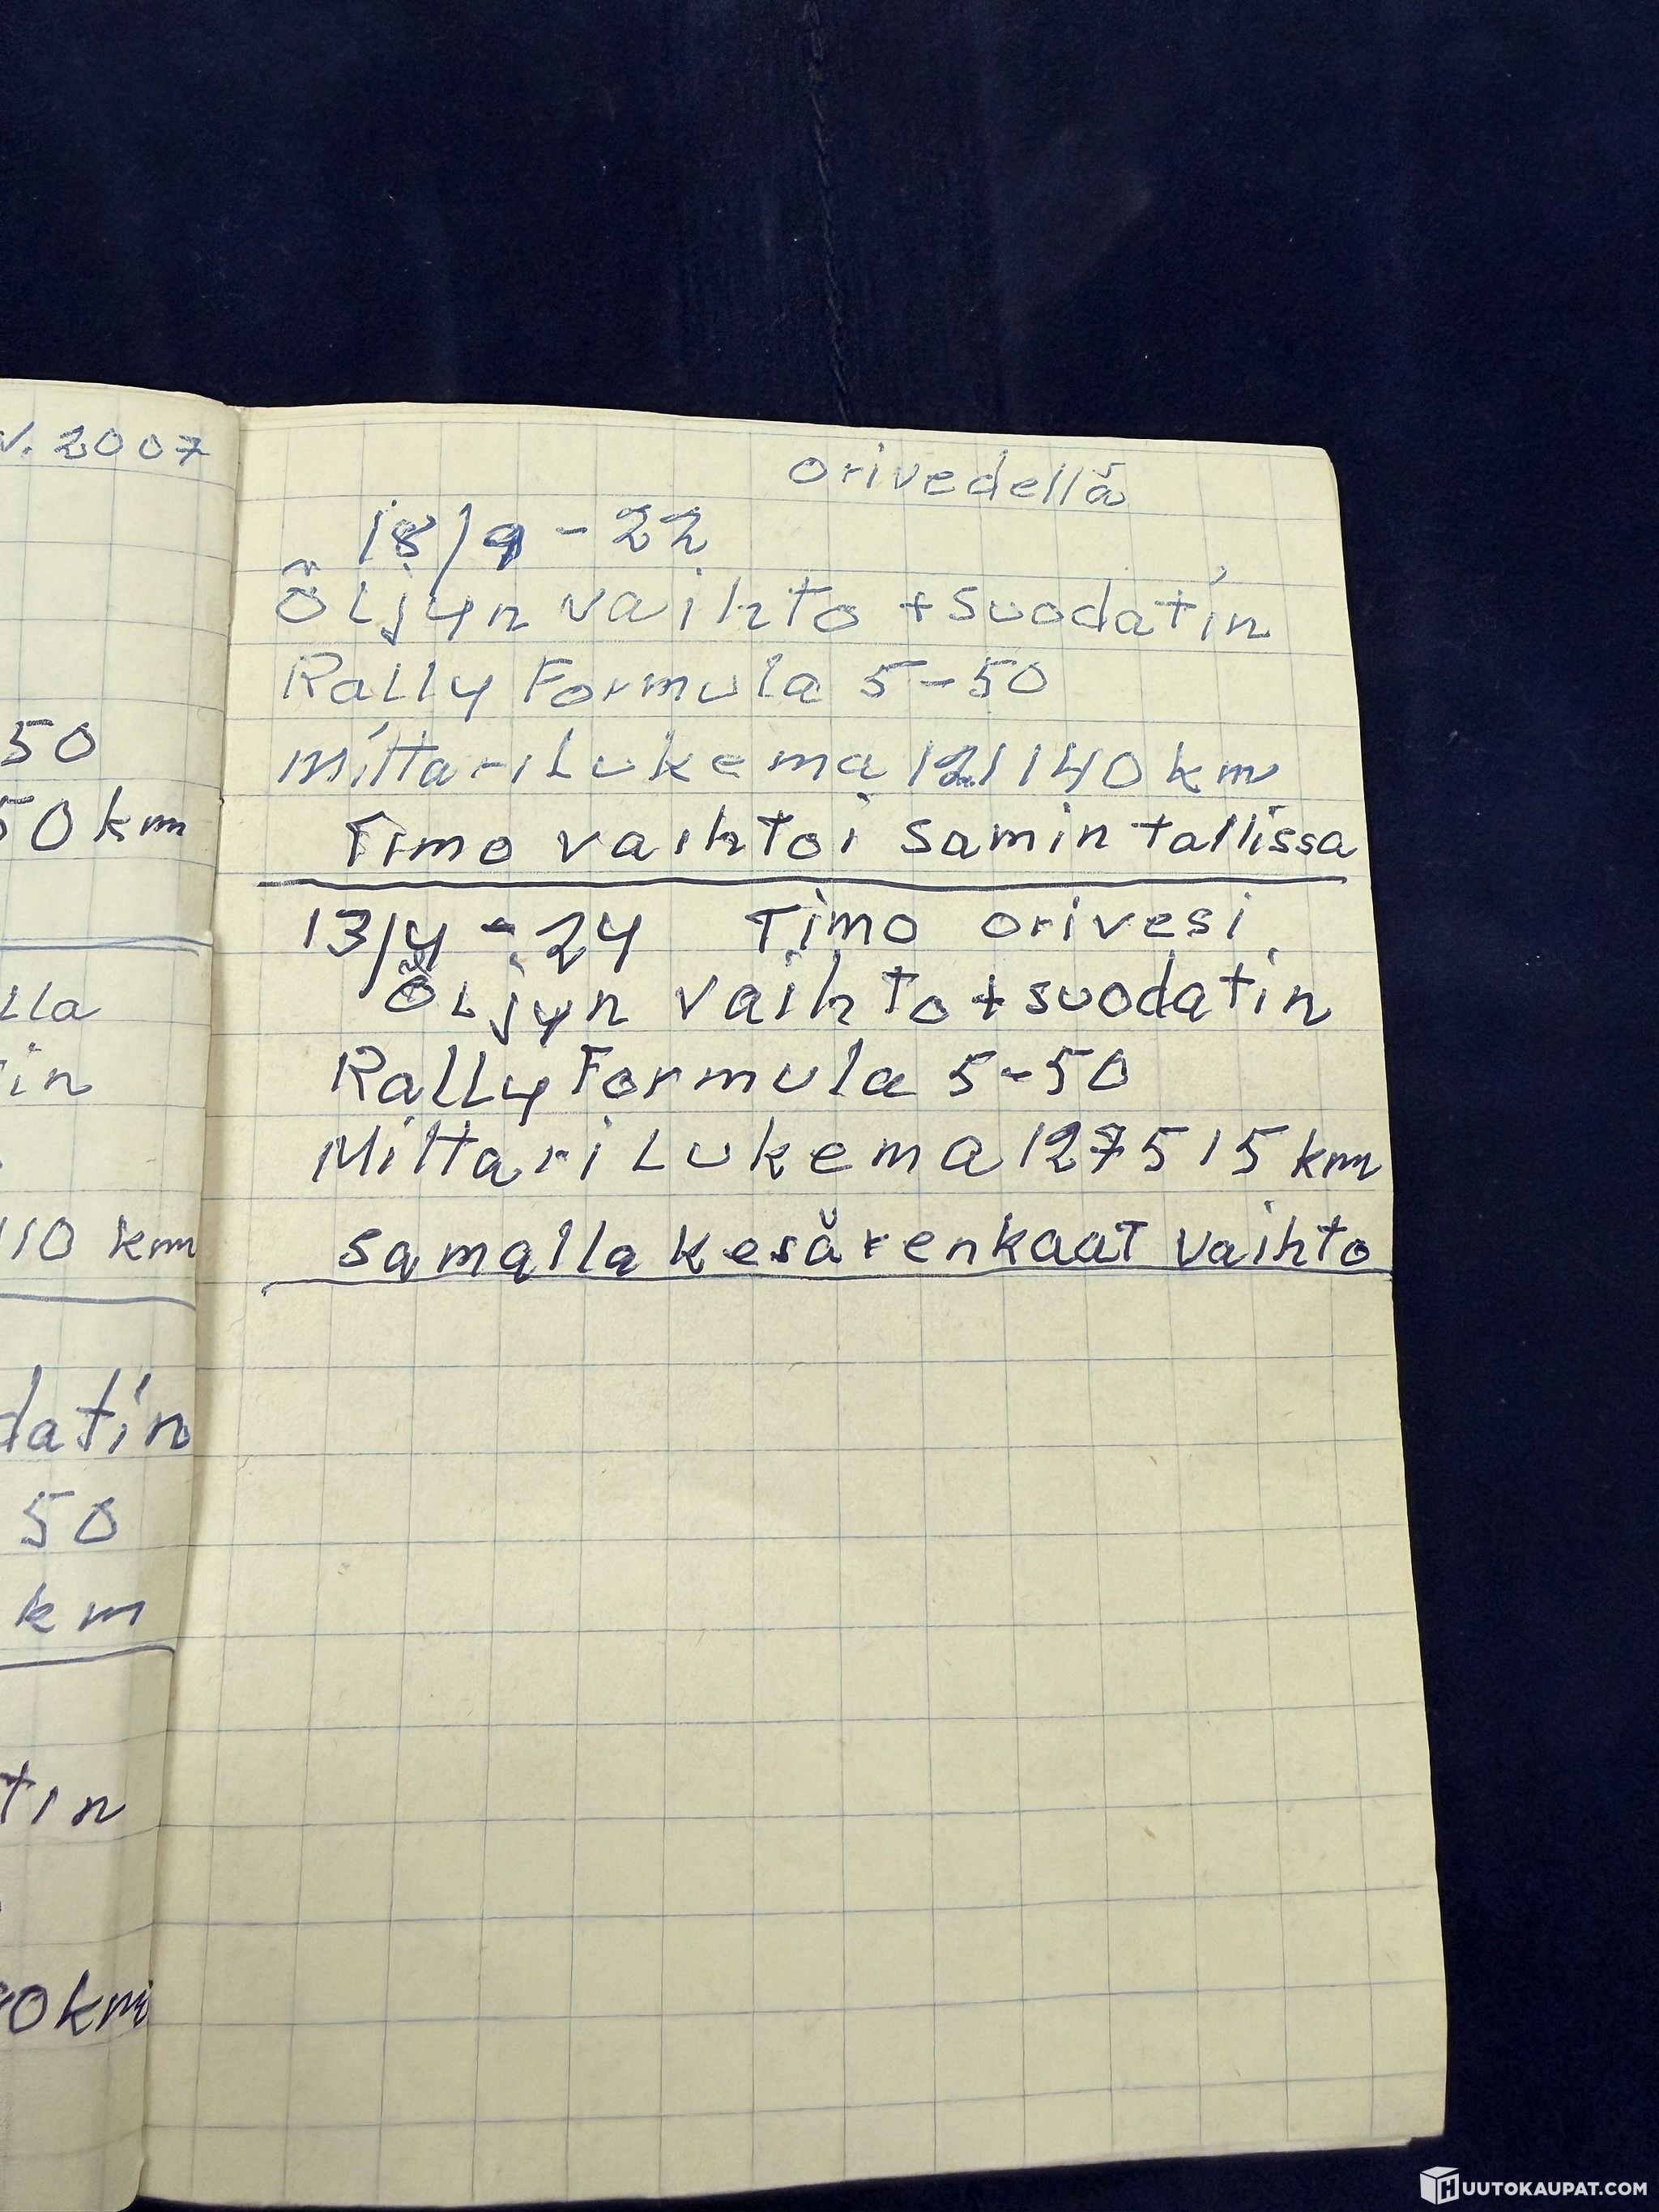 v. 2007
50
50 km
lla
in
110 km
datin
50
km
tin
0 km
orivedellä
18/9 - 22
Öljyn vaihto + suodatin
Rally Formula 5-50
mittarilukema 121140 km
Timo vaihtoi samin tallissa
13/4 - 24 Timo orivesi
Öljyn vaihto + suodatin
Rally Formula 5-50
Mittari Lukema 127515 km
samalla kesärenkaat vaihto
HUUTOKAUPAT.COM